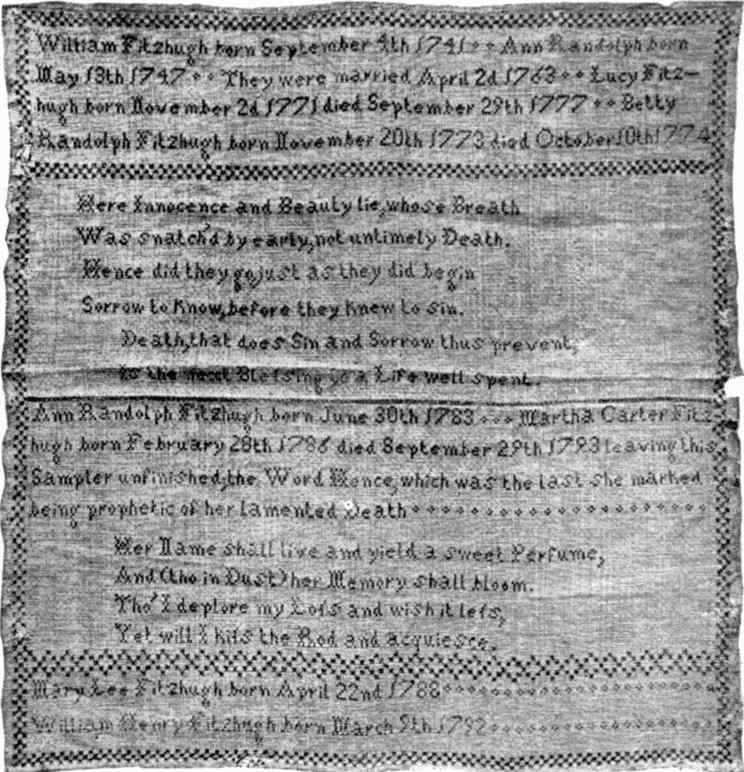 William Fitzhugh born September 4th 1741 Ann Randolph born
May 13th 1747 They were married April 2d 1763 Lucy Fitz-
hugh born November 2d 1771 died September 29th 1777 Betty
Randolph Fitzhugh born November 20th 1773 died October 10th 1774
Here Innocence and Beauty lie, whose Breath
Was snatch'd by early, not untimely Death.
Hence did they go, just as they did begin
Sorrow to Know, before they Knew to Sin.
Death, that does Sin and Sorrow thus prevent,
Is the next Blefsing to a Life well spent.
Ann Randolph Fitzhugh born June 30th 1783 Martha Carter Fitz
hugh born February 28th 1786 died September 29th 1793 leaving this
Sampler unfinished, the Word Hence, which was the last she marked
being prophetic of her lamented Death
Her Name shall live and yield a sweet Perfume,
And (tho in Dust) her Memory shall bloom.
Tho' I deplore my Lofs and wish it lefs,
Yet will I kifs the Rod and acquiesce.
Mary Lee Fitzhugh born April 22nd 1788
William Henry Fitzhugh born March 9th 1792